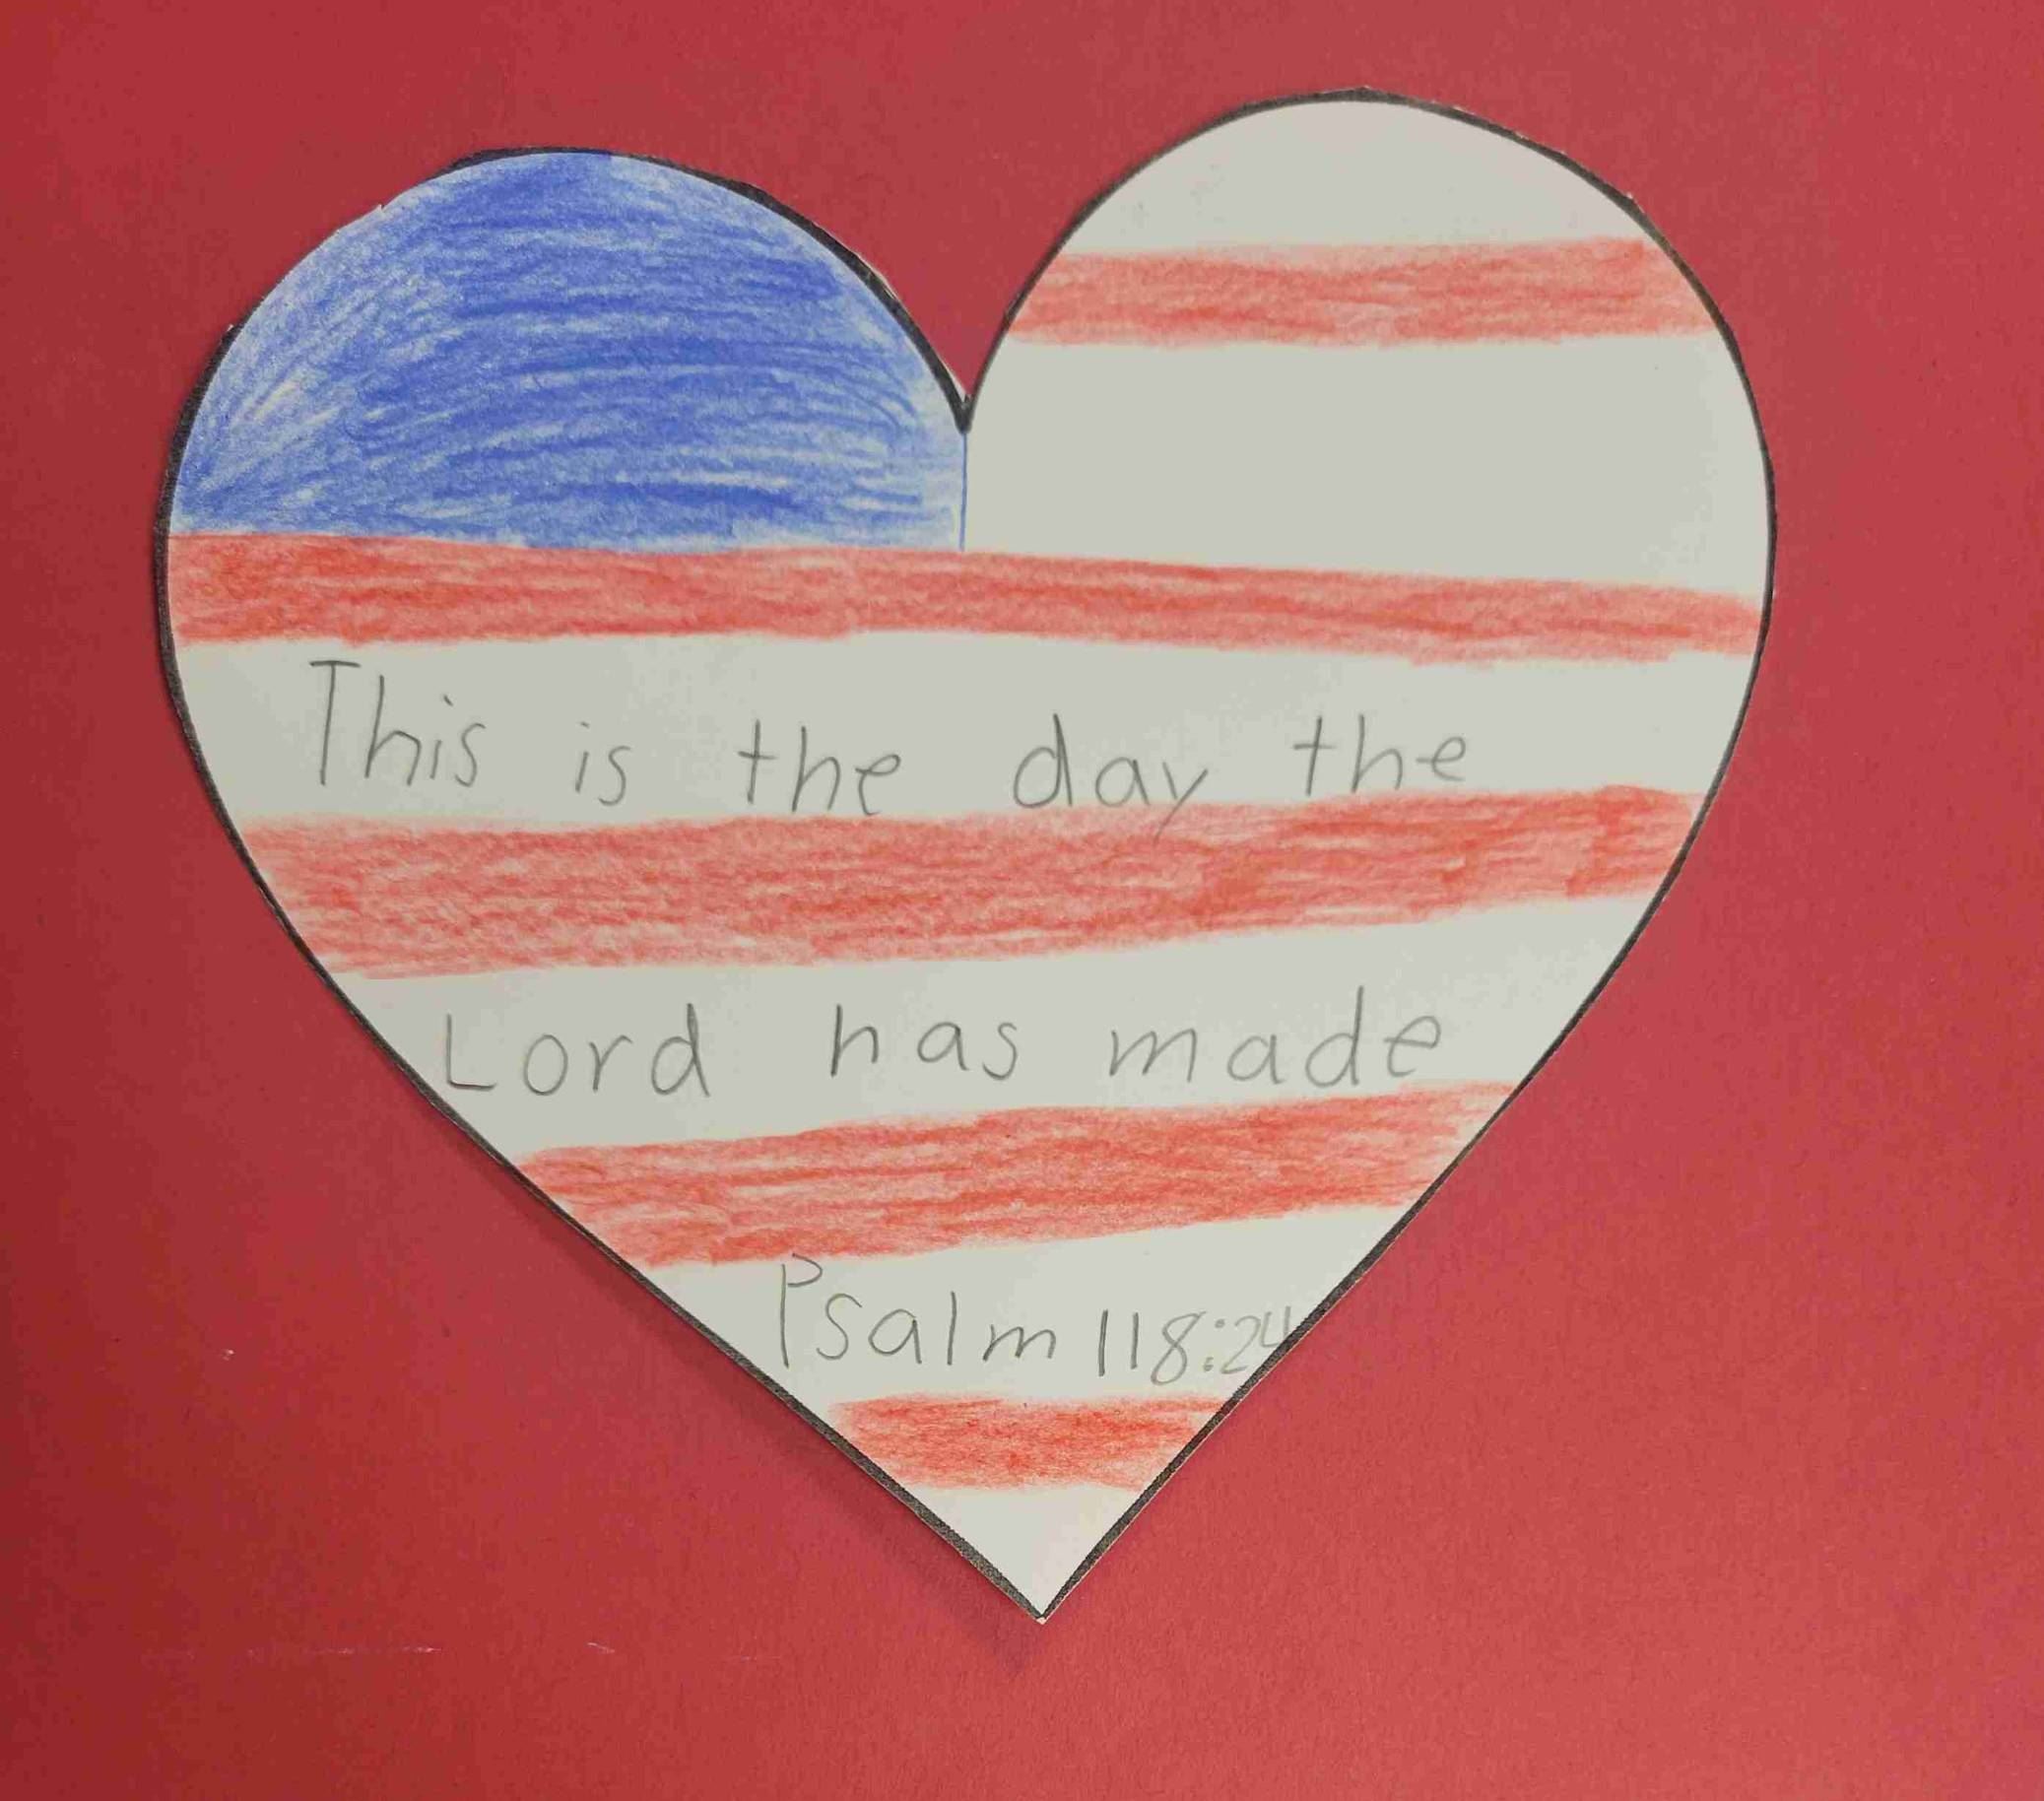 This is the day the
Lord has made
Psalm 118:24